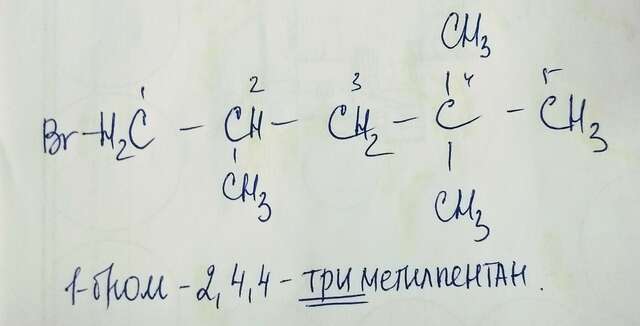 CH₃
1 2 3 4 5
Br-H₂C - CH - CH₂ - C - CH₃
CH₃ CH₃
1-бром - 2,4,4 - триметилпентан.